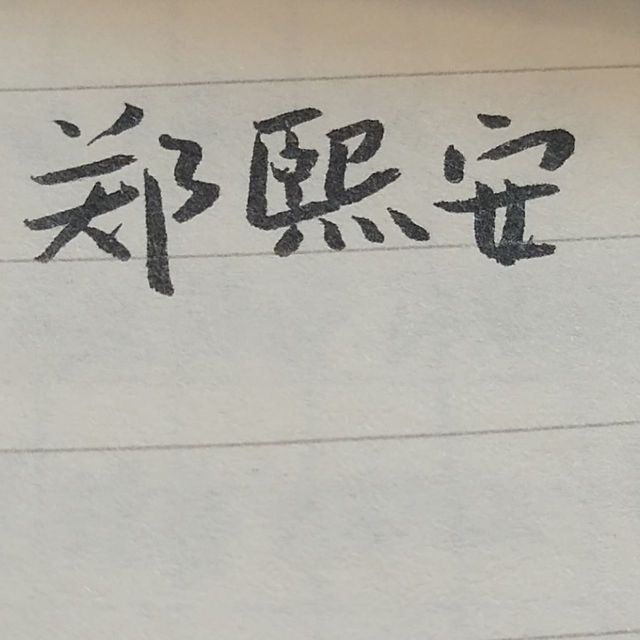 郑熙安